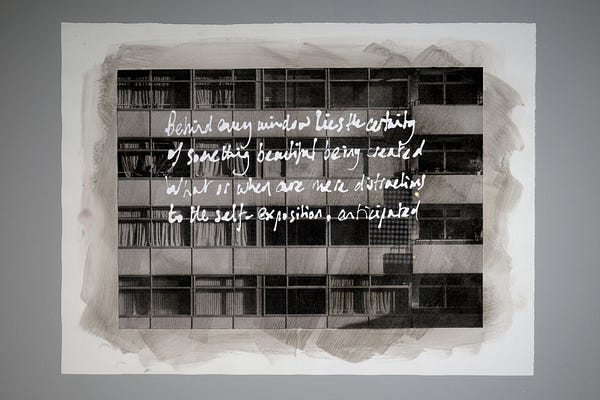 Behind every window lies the certainty
of something beautiful being created
What or when are mere distractions
to the self-exposition, anticipated